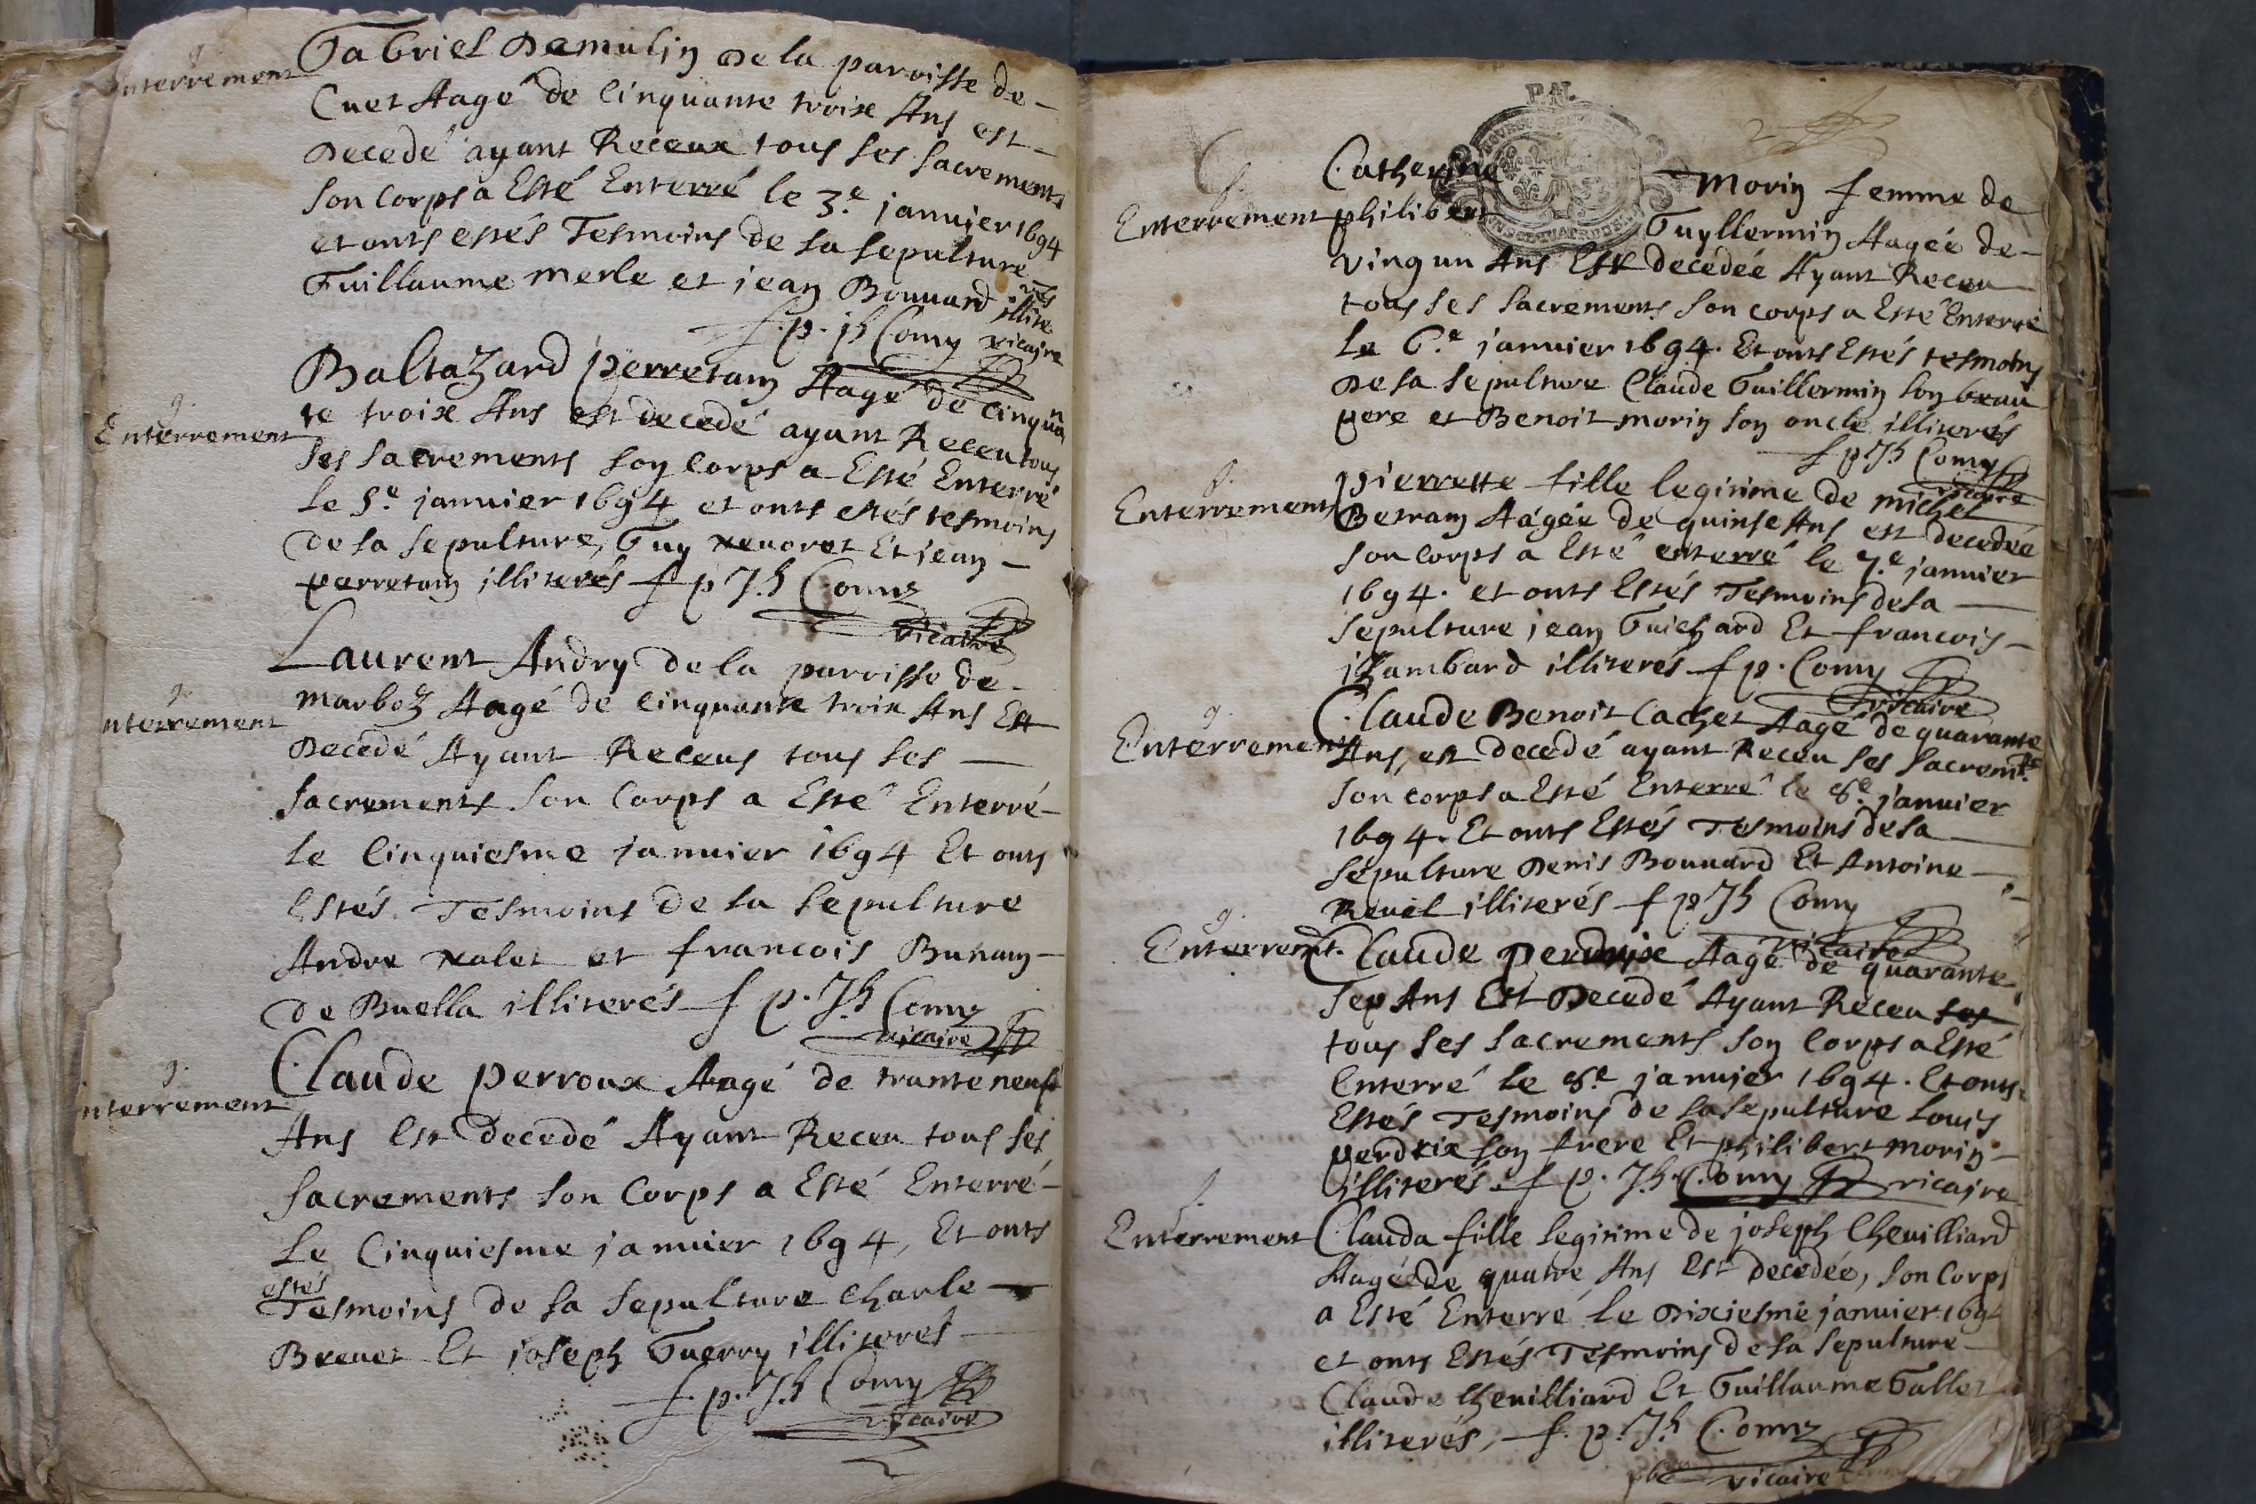 Enterrement
Gabriel Demulin de la paroisse de
Cuet Aagé de Cinquante troix Ans est
Decedé ayant Receux tous ses sacrements
son corps a Esté Enterré le 3.e januier 1694
et onts estés Tesmoins de sa sepulture
Guillaume merle et jean Bouuard illite
rés
f. p. jh Comy vicaire
Enterrement
Baltazard perretam Aagé de Cinquan
te troix Ans est decedé ayant Receu tous
ses sacrements son Corps a Esté Enterré
le 5.e januier 1694 et onts estés tesmoins
de sa sepulture, Guy Et jean
perretam illiterés f p Jh Comy
vicaire
nterrement
Laurent Andry de la paroisse de
marboz Aagé de Cinquante troix Ans Est
Decedé Ayant Receus tous ses
sacrements son Corps a Esté Enterré
le Cinquiesme januier 1694 Et onts
Estés Tesmoins de sa sepulture
Andre et francois Bunam
de Buella illiterés f p. Jh Comy
vicaire
nterrement
Claude perroux Aagé de trante neuf
Ans Est decedé Ayant Receu tous ses
sacrements son Corps a Esté Enterré
Le Cinquiesme januier 1694, Et onts
estés
Tesmoins de sa sepulture Charle
Breuet Et joseph Guerry illiterés
f. p. Jh Comy
vicaire
P.N.
Enterrement
Catherine morin femme de
philibert Guyllermin Aagée de
vingun Ans Est decedée Ayant Receu
tous ses sacrements son corps a Esté Enterré
Le 6.e januier 1694. Et onts Estés tesmoins
De sa sepulture Claude Guillermin son beau
pere et Benoit morin son oncle illiterés
f p Jh Comy
vicaire
Enterrement
pierrette fille legitime de michel
Betram Aagée de quinse Ans est decedée
son corps a Esté enterré le 7.e januier
1694. et onts Estés Tesmoins de sa
sepulture jean Guichard Et francois
jzambard illiterés f p. Comy
vicaire
Enterrement
Claude Benoit Cachet Aagé de quarante
Ans, est decedé ayant Receu ses sacremts
son corps a Esté Enterré le 8.e januier
1694. Et onts Estés Tesmoins de sa
sepulture Denis Bouuard Et Antoine
Reuel illiterés f p Jh Comy
vicaire
Enterremt.
Claude perdrix Aagé de quarante
sep Ans Est Decedé Ayant Receu ses
tous ses sacrements son Corps a Esté
Enterré le 8.e januier 1694. Et onts
Estés Tesmoins de sa sepulture Louis
perdrix son frere Et philibert morin
illiterés. f p. Jh Comy vicaire
Enterrement
Clauda fille legitime de joseph Cheuilliard
Aagée de quatre Ans Est decedée, son Corps
a Esté Enterré Le Dixiesme januier 169
et onts Estés Tesmoins de sa sepulture
Claude Cheuilliard Et Guillaume Gallet
illiterés, f. p. Jh Comy
vicaire